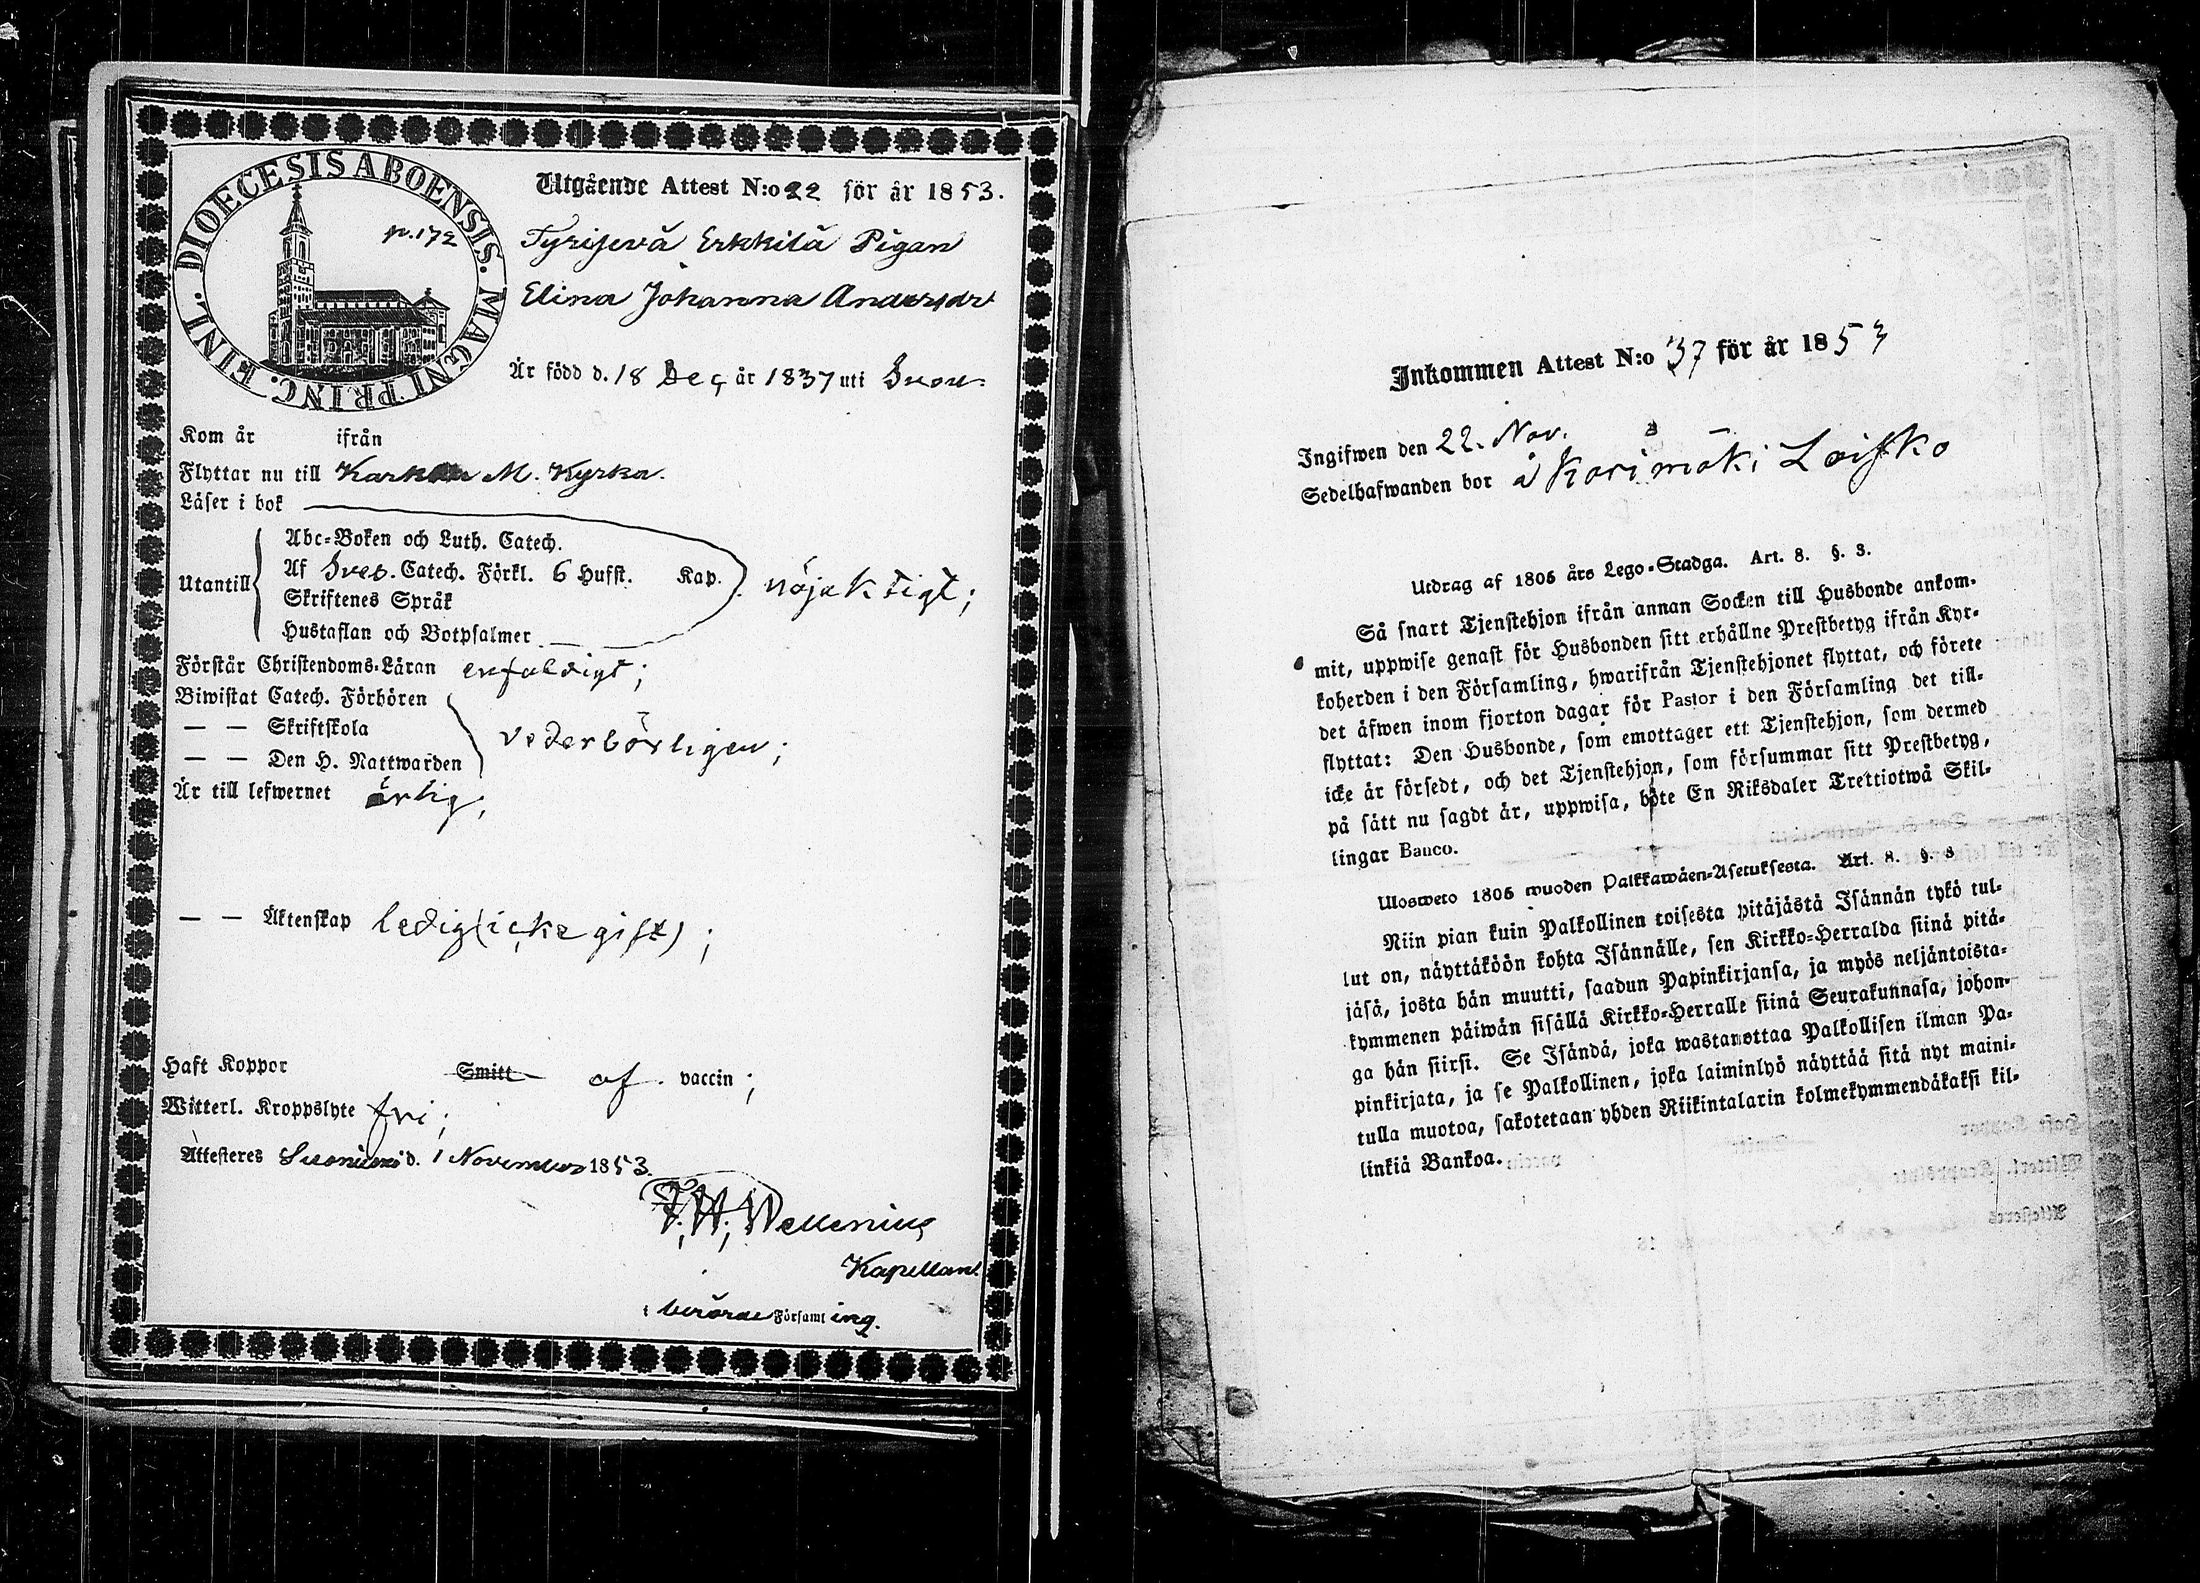 DIOECESIS ABOENSIS. MAGNI PRINC. FINL.
p. 172
Utgående Attest N:o 22 för år 1853.
Tyrisevä Erkkilä Pigan
Elina Johanna Andersdr
Är född d. 18 Dec. år 1837 uti
Kom år ifrån
Flyttar nu till Karkku M. Kyrka.
Läser i bok
Utantill
Abc-Boken och Luth. Catech.
Af Sveb. Catech. Förkl. 6 Hufst. Kap.
Skriftenes Språk
Hustaflan och Botpsalmer
nöjaktigt;
Förstår Christendoms-Läran enfaldigt;
Biwistat Catech. Förhören
— — Skriftskola
— — Den H. Nattwarden
vederbörligen;
Är till lefwernet ärlig;
— — Äktenskap ledig (icke gift);
Haft Koppor Smitt af vaccin;
Witterl. Kroppslyte fri;
Attesteres Suoniemi d. 1 November 1853.
Kapellan
i berörde Församling.
Inkommen Attest N:o 37 för år 1853
Ingifwen den 22. Nov.
Sedelhafwanden bor å Korimäki Loisko
Utdrag af 1805 års Lego-Stadga. Art. 8. §. 3.
Så snart Tjenstehjon ifrån annan Socken till Husbonde ankom-
mit, uppwise genast för Husbonden sitt erhållne Prestbetyg ifrån Kyr-
koherden i den Församling, hwarifrån Tjenstehjonet flyttat, och förete
det äfwen inom fjorton dagar för Pastor i den Församling det till-
flyttat: Den Husbonde, som emottager ett Tjenstehjon, som dermed
icke är försedt, och det Tjenstehjon, som försummar sitt Prestbetyg,
på sätt nu sagdt är, uppwisa, böte En Riksdaler Trettiotwå Skil-
lingar Banco.
Ulosweto 1805 wuoden Palkkawäen-Asetuksesta. Art. 8. §. 3
Niin pian kuin Palkollinen toisesta pitäjästä Isännän tykö tul-
lut on, näyttäköön kohta Isännälle, sen Kirkko-Herralda siinä pitä-
jäsä, josta hän muutti, saadun Papinkirjansa, ja myös neljäntoista-
kymmenen päiwän sisällä Kirkko-Herralle siinä Seurakunnasa, johon-
ga hän siirsi. Se Isändä, joka wastanottaa Palkollisen ilman Pa-
pinkirjata, ja se Palkollinen, joka laiminlyö näyttää sitä nyt maini-
tulla muotoa, sakotetaan yhden Riikintalarin kolmekymmendäkaksi kil-
linkiä Bankoa.